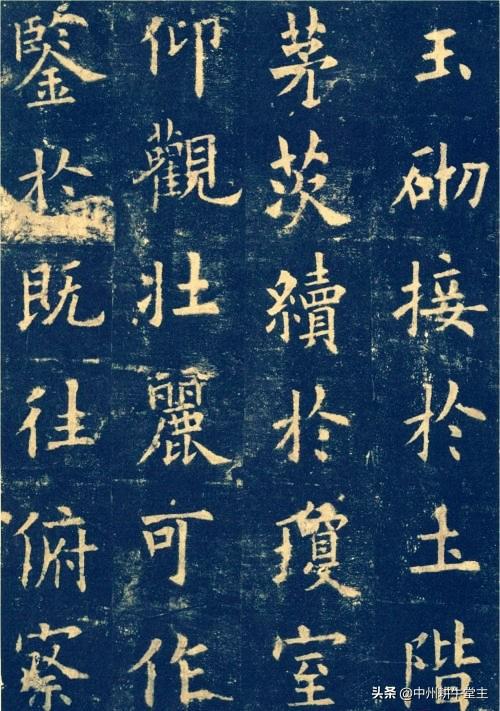 玉砌接於土階
茅茨續於瓊室
仰觀壯麗可作
鑒於既往俯察
头条 @中州耕牛堂主